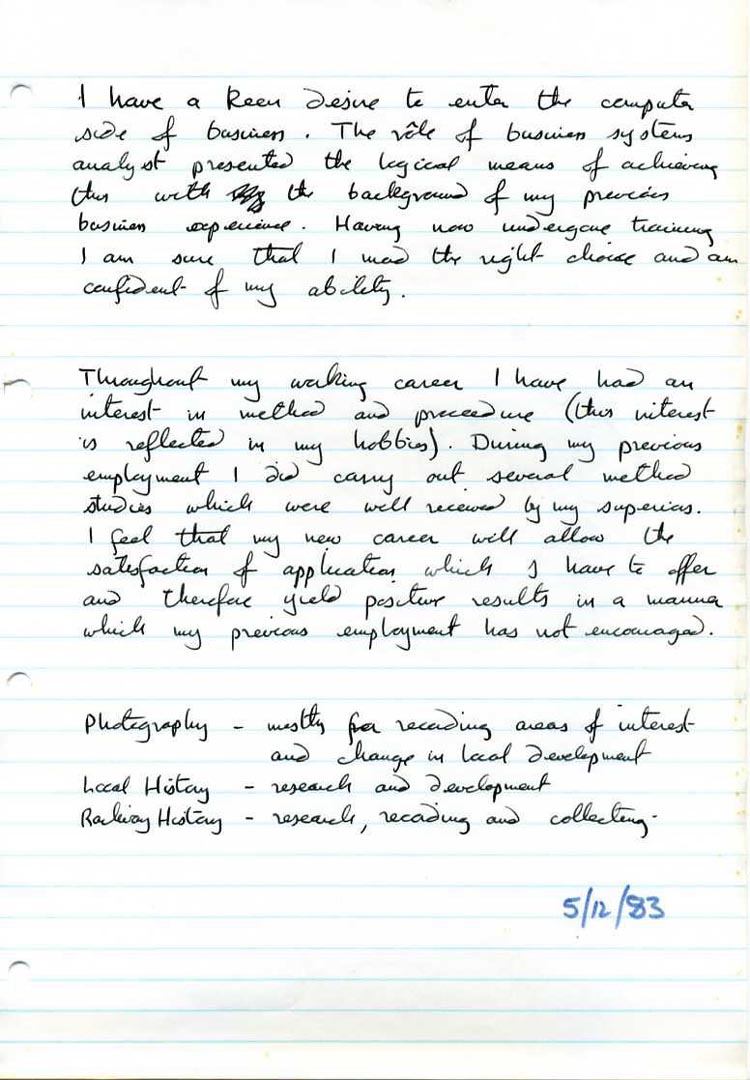 I have a keen desire to enter the computer
side of business. The rôle of business systems
analyst presented the logical means of achieving
this with the background of my previous
business experience. Having now undergone training
I am sure that I mad the right choice and am
confident of my ability.
Throughout my working career I have had an
interest in method and proceedure (this interest
is reflected in my hobbies). During my previous
employment I did carry out several method
studies which were well received by my superiors.
I feel that my new career will allow the
satisfaction of application which I have to offer
and therefore yield positive results in a manner
which my previous employment has not encouraged.
Photography - mostly for recording areas of interest
and change in local development
Local History - research and development
Railway History - research, recording and collecting.
5/12/83